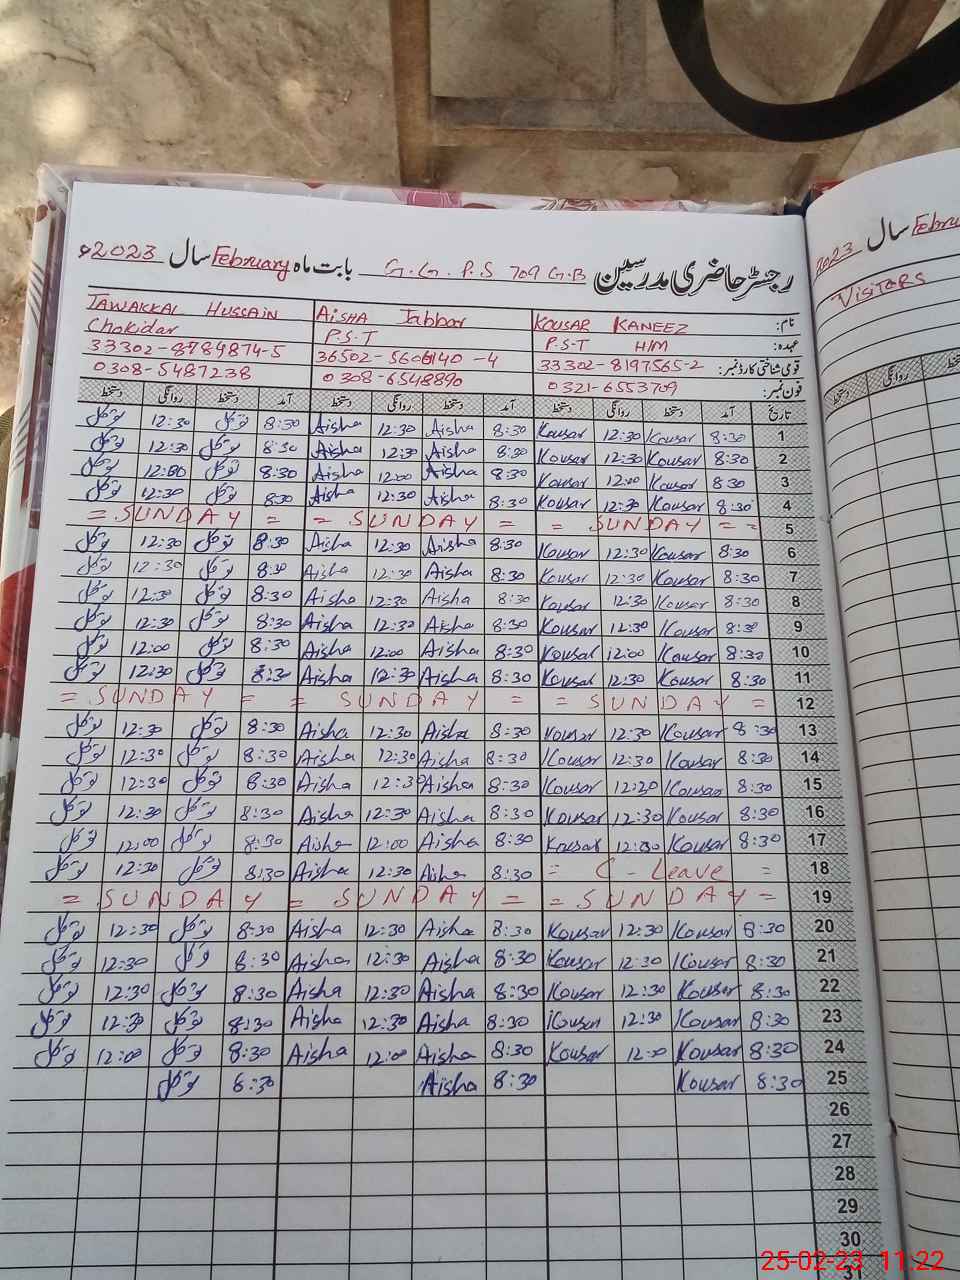 رجسٹر حاضری مدرسین G.G.P.S 709 G.B بابت ماہ February سال 2023ء
نام: KOUSAR KANEEZ AISHA Jabbar TAWAKKAL HUSSAIN
عہدہ: P.S.T H/M P.S.T Chokidar
قومی شناختی کارڈ نمبر: 33302-8197565-2 36502-5606140-4 33302-8784874-5
فون نمبر: 0321-6553709 0308-6548890 0308-5487238
تاریخ آمد دستخط روانگی دستخط آمد دستخط روانگی دستخط آمد دستخط روانگی دستخط
1 8:30 Kousar 12:30 Kousar 8:30 Aisha 12:30 Aisha 8:30 توکل 12:30 توکل
2 8:30 Kousar 12:30 Kousar 8:30 Aisha 12:30 Aisha 8:30 توکل 12:30 توکل
3 8:30 Kousar 12:00 Kousar 8:30 Aisha 12:00 Aisha 8:30 توکل 12:00 توکل
4 8:30 Kousar 12:30 Kousar 8:30 Aisha 12:30 Aisha 8:30 توکل 12:30 توکل
5 = SUNDAY = = = SUNDAY = = SUNDAY =
6 8:30 Kousar 12:30 Kousar 8:30 Aisha 12:30 Aisha 8:30 توکل 12:30 توکل
7 8:30 Kousar 12:30 Kousar 8:30 Aisha 12:30 Aisha 8:30 توکل 12:30 توکل
8 8:30 Kousar 12:30 Kousar 8:30 Aisha 12:30 Aisha 8:30 توکل 12:30 توکل
9 8:30 Kousar 12:30 Kousar 8:30 Aisha 12:30 Aisha 8:30 توکل 12:30 توکل
10 8:30 Kousar 12:00 Kousar 8:30 Aisha 12:00 Aisha 8:30 توکل 12:00 توکل
11 8:30 Kousar 12:30 Kousar 8:30 Aisha 12:30 Aisha 8:30 توکل 12:30 توکل
12 = SUNDAY = = SUNDAY = = SUNDAY =
13 8:30 Kousar 12:30 Kousar 8:30 Aisha 12:30 Aisha 8:30 توکل 12:30 توکل
14 8:30 Kousar 12:30 Kousar 8:30 Aisha 12:30 Aisha 8:30 توکل 12:30 توکل
15 8:30 Kousar 12:30 Kousar 8:30 Aisha 12:30 Aisha 8:30 توکل 12:30 توکل
16 8:30 Kousar 12:30 Kousar 8:30 Aisha 12:30 Aisha 8:30 توکل 12:30 توکل
17 8:30 Kousar 12:00 Kousar 8:30 Aisha 12:00 Aisha 8:30 توکل 12:00 توکل
18 = C - Leave = 8:30 Aisha 12:30 Aisha 8:30 توکل 12:30 توکل
19 = SUNDAY = = SUNDAY = = SUNDAY =
20 8:30 Kousar 12:30 Kousar 8:30 Aisha 12:30 Aisha 8:30 توکل 12:30 توکل
21 8:30 Kousar 12:30 Kousar 8:30 Aisha 12:30 Aisha 8:30 توکل 12:30 توکل
22 8:30 Kousar 12:30 Kousar 8:30 Aisha 12:30 Aisha 8:30 توکل 12:30 توکل
23 8:30 Kousar 12:30 Kousar 8:30 Aisha 12:30 Aisha 8:30 توکل 12:30 توکل
24 8:30 Kousar 12:00 Kousar 8:30 Aisha 12:00 Aisha 8:30 توکل 12:00 توکل
25 8:30 Kousar 8:30 Aisha 8:30 توکل
26
27
28
29
30
31
سال 2023
VISITORS
روانگی دستخط
25-02-23 11:22